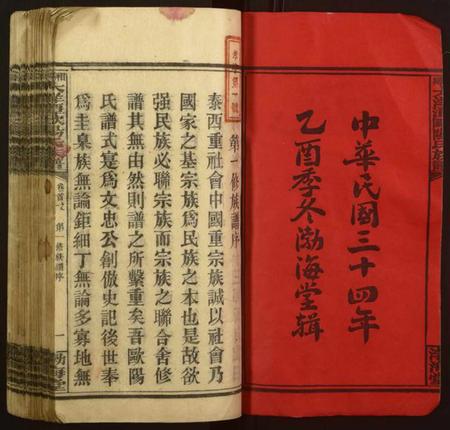 中華民國三十四年
乙酉季冬渤海堂輯
第一修族譜序
泰西重社會中國重宗族誠以社會乃
國家之基宗族爲民族之本也是故欲
强民族必聯宗族而宗族之聯合舍修
譜其無由然則譜之所繫重矣吾歐陽
氏譜式寔爲文忠公創倣史記後世奉
爲圭臬族無論鉅細丁無論多寡地無
卷首之
第一修族譜序
一
渤海堂